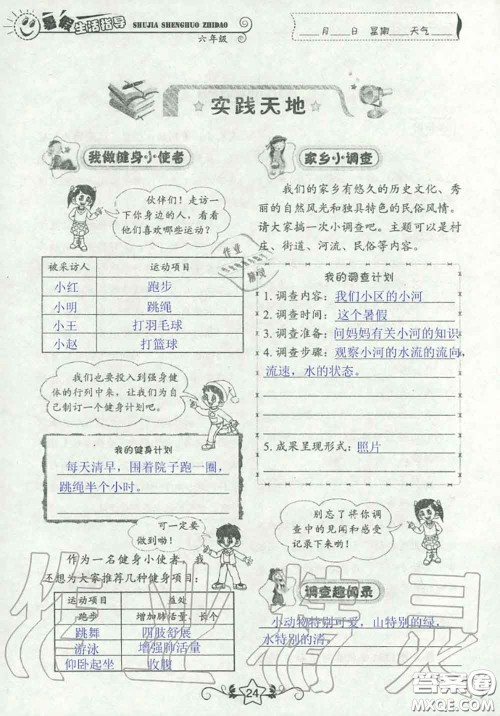 暑假生活指导
SHUJIA SHENGHUO ZHIDAO
六年级
月 日 星期 天气
实践天地
我做健身小使者
伙伴们！走访一
下你身边的人，看看
他们喜欢哪些运动？
被采访人 运动项目
小红 跑步
小明 跳绳
小王 打羽毛球
小赵 打篮球
我们也要投入到强身健
体的行列中来，就让我们为
自己制订一个健身计划吧。
我的健身计划
每天清早，围着院子跑一圈，
跳绳半个小时。
可一定要
做到哟！
作为一名健身小使者，我
还想为大家推荐几种健身项目：
运动项目 益处
跑步 增加肺活量、长个
跳舞 四肢舒展
游泳 增强肺活量
仰卧起坐 收腹
家乡小调查
我们的家乡有悠久的历史文化、秀
丽的自然风光和独具特色的民俗风情。
请大家搞一次小调查吧。主题可以是村
庄、街道、河流、民俗等内容。
我的调查计划
1. 调查内容：我们小区的小河
2. 调查时间：这个暑假
3. 调查准备：问妈妈有关小河的知识
4. 调查步骤：观察小河的水流的流向，
流速，水的状态。
5. 成果呈现形式：照片
别忘了将你调
查中的见闻和感受
记录下来哟！
调查趣闻录
小动物特别可爱，山特别的绿，
水特别的清。
24
作业
答案圈
MXQE.COM